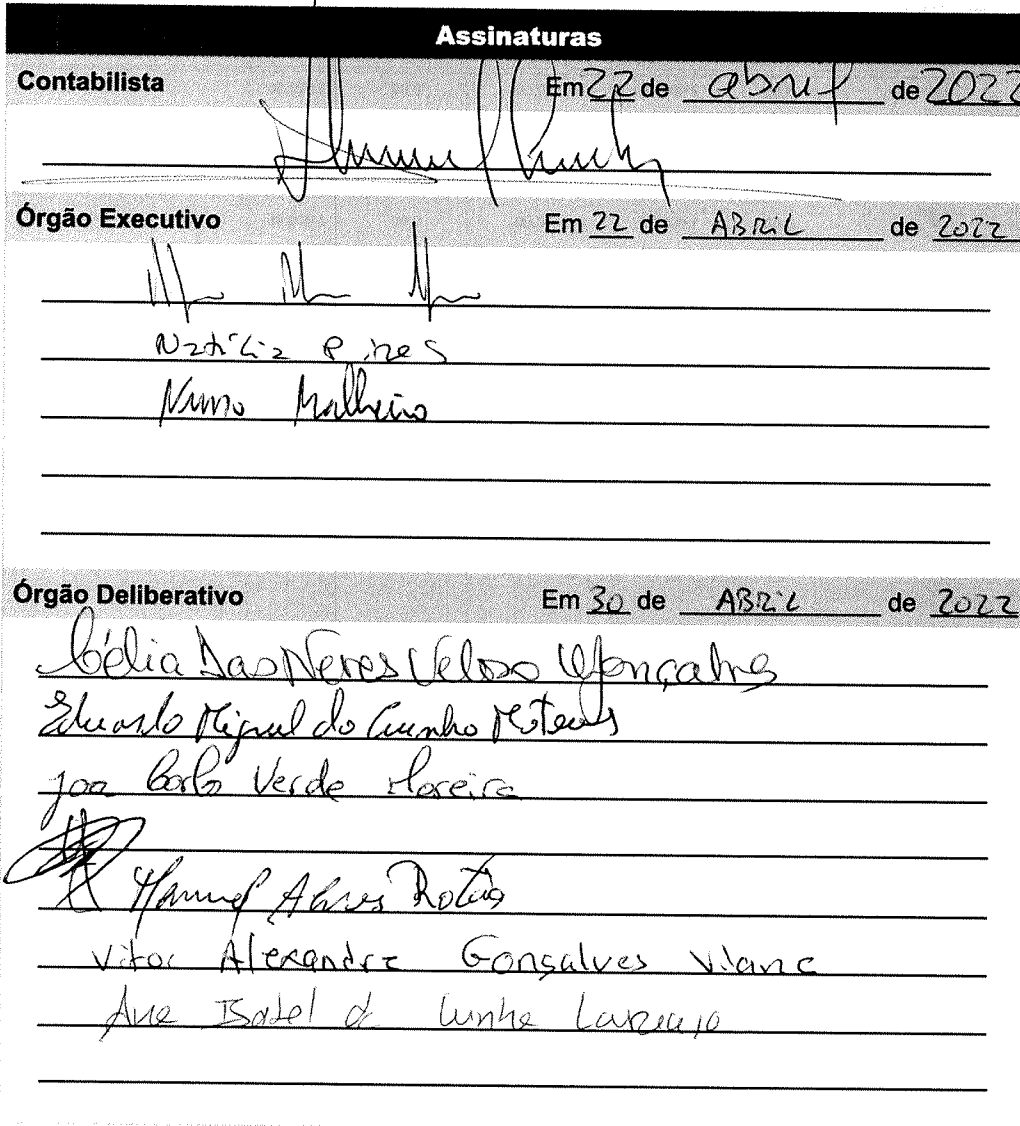 Assinaturas
Contabilista Em 22 de abril de 2022
Órgão Executivo Em 22 de ABRIL de 2022
Natália Pires
Nuno Malheiro
Órgão Deliberativo Em 30 de ABRIL de 2022
Célia Das Neves Veloso Gonçalves
Eduardo Miguel da Cunha
Verde Moreira
Manuel Alves
Vitor Alexandre Gonçalves
Ana Isabel da Cunha